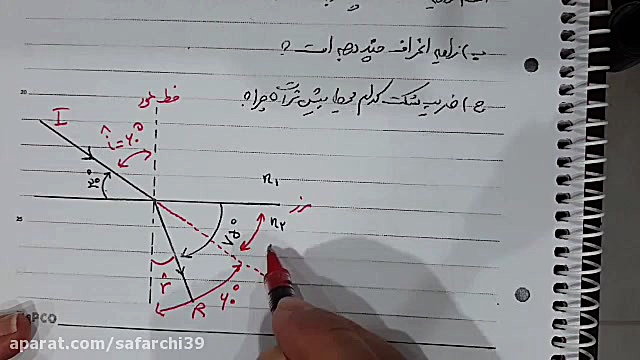 ب) زاویه انحراف چند درجه است ؟
ج) ضریب شکست کدام محیط بیش‌تر است ؟ چرا ؟
خط عمود
I
î = ۶۰°
۳۰°
n₁
مرز
n₂
۷۵°
r̂
R
۶۰°
20
25
PCO
aparat.com/safarchi39